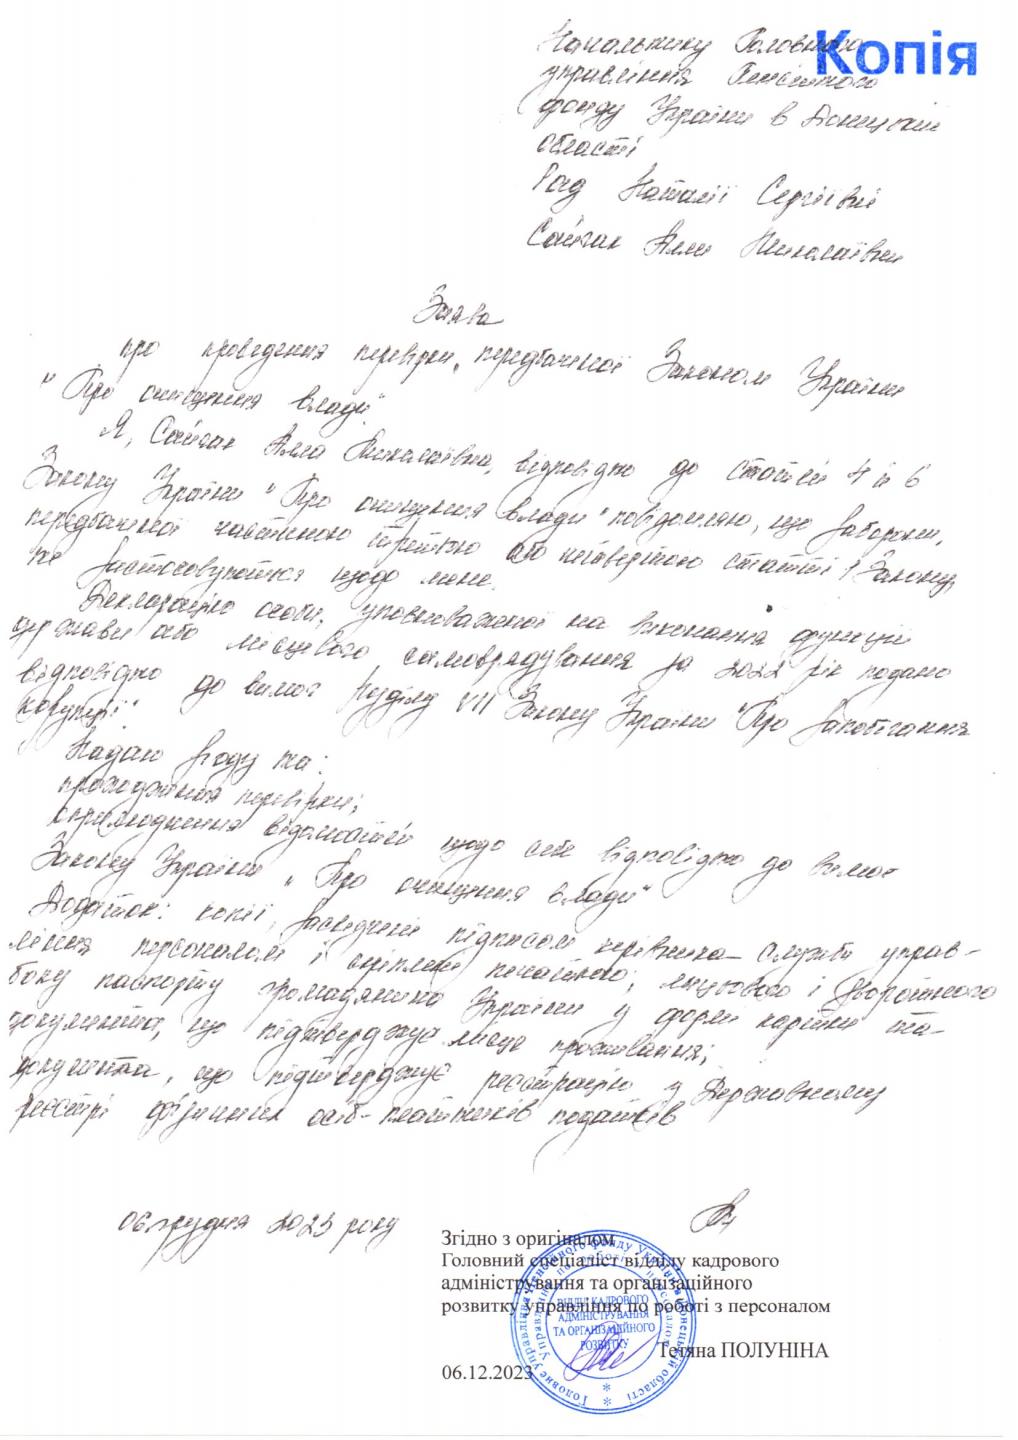 Копія
Начальнику Головного
управління Пенсійного
фонду України в Донецькій
області
Рад Наталії Сергіївні
Сайгак Алли Миколаївни
Заява
про проведення перевірки, передбаченої Законом України
"Про очищення влади"
Я, Сайгак Алла Миколаївна, відповідно до статей 4 й 6
Закону України "Про очищення влади" повідомляю, що заборони,
передбаченої частиною третьою або четвертою статті 1 Закону,
не застосовуються щодо мене.
Декларацію особи, уповноваженої на виконання функцій
держави або місцевого самоврядування за 2022 рік подано
відповідно до вимог розділу VII Закону України "Про запобігання
корупції".
Надаю згоду на:
проходження перевірки;
оприлюднення відомостей щодо себе відповідно до вимог
Закону України "Про очищення влади"
Додаток: копії, засвідчені підписом керівника служби управ-
ління персоналом і скріплені печаткою; лицьового і зворотного
боку паспорту громадянина України у формі картки та
документа, що підтверджує місце проживання;
документа, що підтверджує реєстрацію у Державному
реєстрі фізичних осіб-платників податків
06 грудня 2023 року
Згідно з оригіналом
Головний спеціаліст відділу кадрового
адміністрування та організаційного
розвитку управління по роботі з персоналом
Тетяна ПОЛУНІНА
06.12.2023
Головне управління Пенсійного фонду України в Донецькій області
Управління по роботі з персоналом
ВІДДІЛ КАДРОВОГО
АДМІНІСТРУВАННЯ
ТА ОРГАНІЗАЦІЙНОГО
РОЗВИТКУ